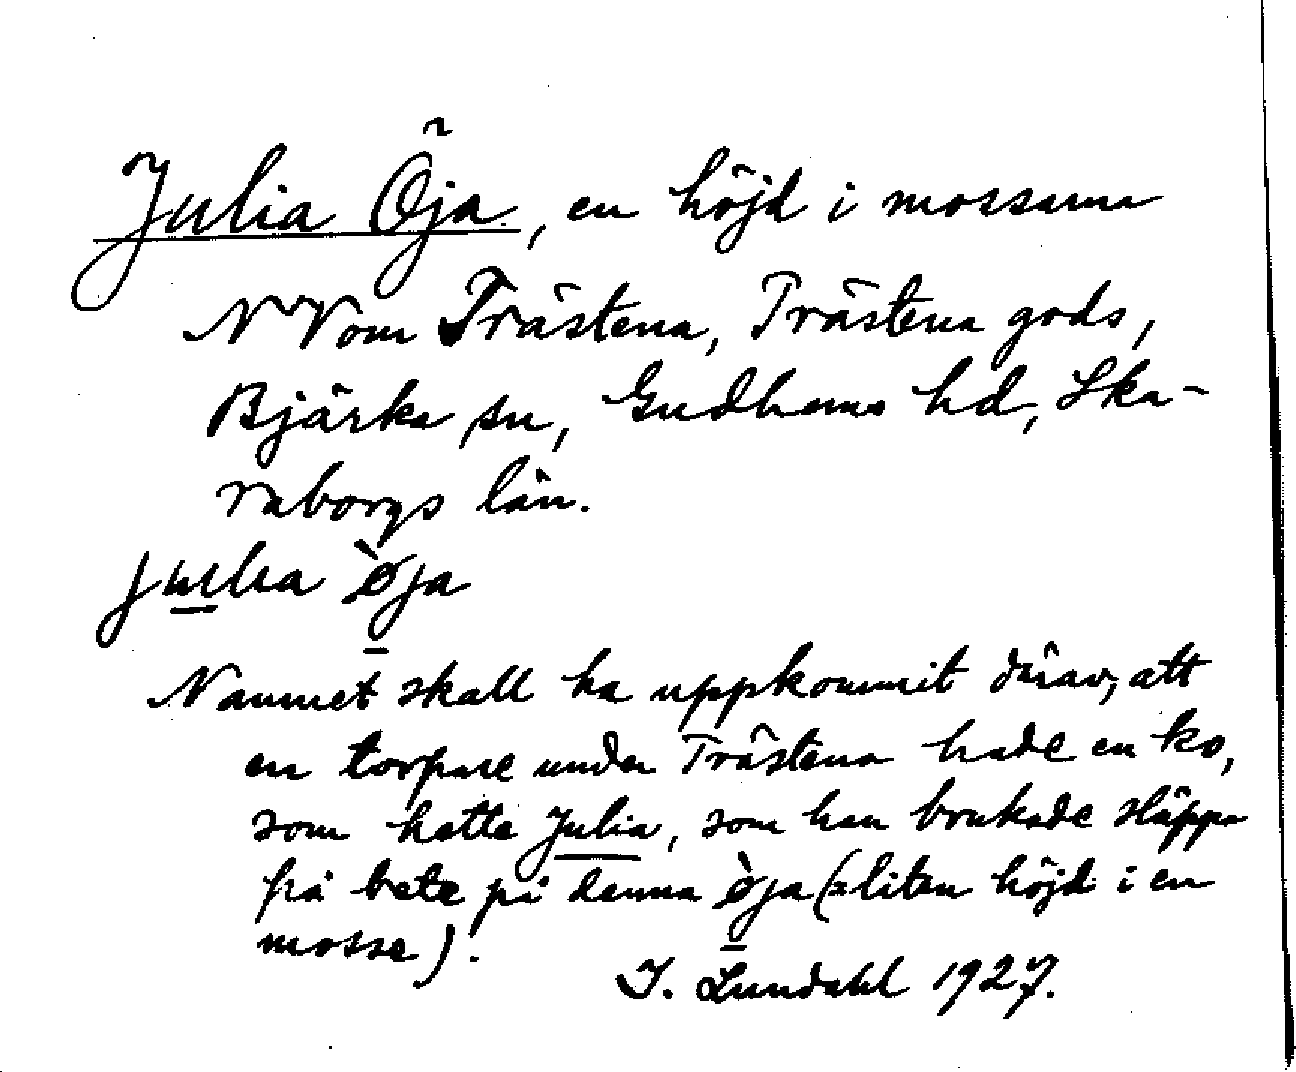 Julia Öja, en höjd i mossarna
N V om Trästena, Trästena gods,
Bjärka sn, Gudhems hd, Ska-
raborgs län.
julia ø̀ja
Namnet skall ha uppkommit därav, att
en torpare under Trästena hade en ko,
som hette Julia, som han brukade släppa
på bete på denna ø̀ja (= liten höjd i en
mosse).
I. Lundahl 1927.